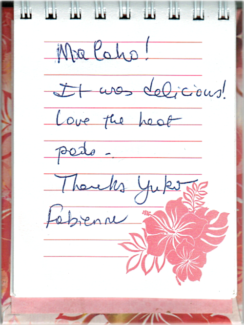 Mahalo!
It was delicious!
Love the heat
pads -
Thanks Yuko
Fabienne